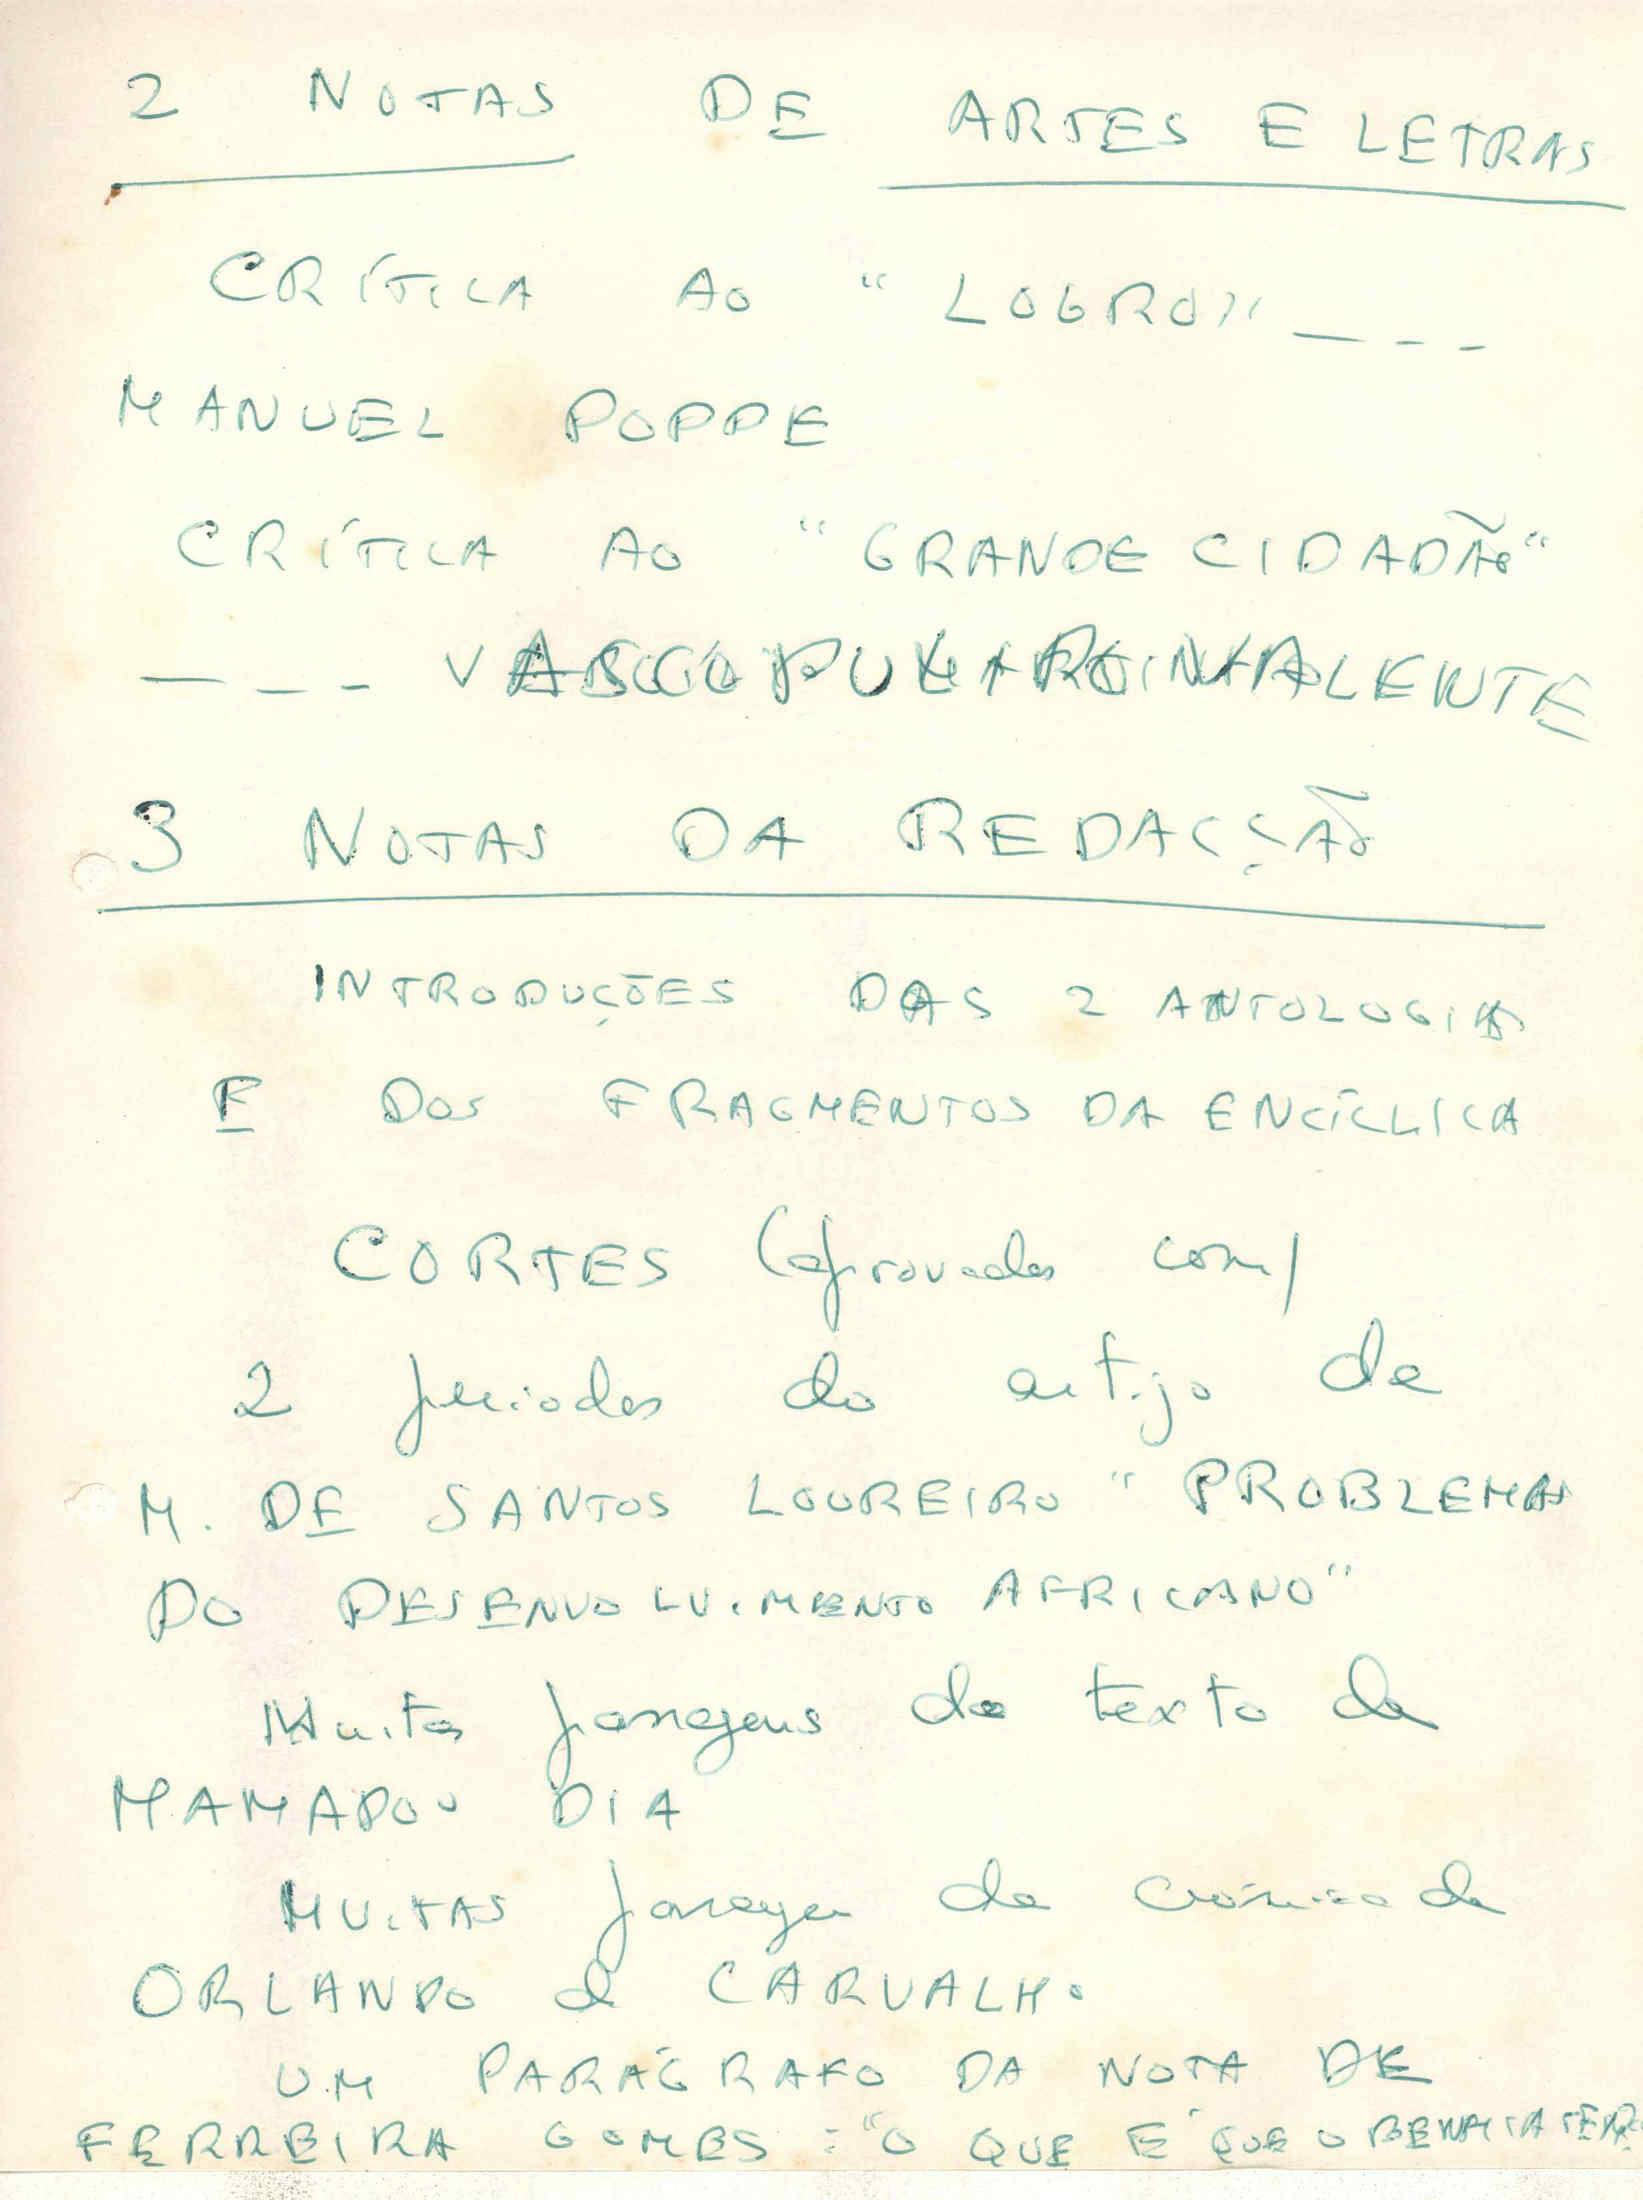 2 NOTAS DE ARTES E LETRAS
CRÍTICA AO "LOGRO" _ _ _
MANUEL POPPE
CRÍTICA AO "GRANDE CIDADÃO"
_ _ _ VASCO PULIDO VALENTE
3 NOTAS DA REDACÇÃO
INTRODUÇÕES DAS 2 ANTOLOGIAS
E DOS FRAGMENTOS DA ENCÍCLICA
CORTES (aprovados com)
2 períodos do artigo de
M. DE SANTOS LOUREIRO "PROBLEMAS
DO DESENVOLVIMENTO AFRICANO"
Muitas passagens do texto de
MAMADOU DIA
MUITAS passagens da crónica de
ORLANDO de CARVALHO
UM PARÁGRAFO DA NOTA DE
FERREIRA GOMES : "O QUE É QUE O